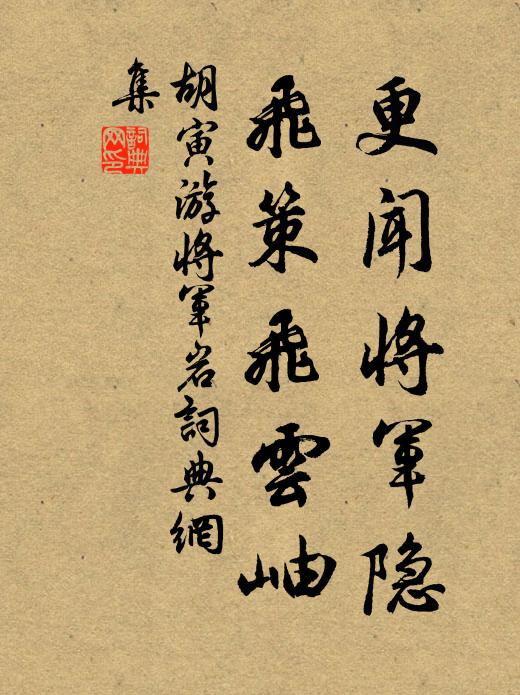 更闻将军隐
飛策飛雲岫
胡寅游将軍岩詞典網
集
詞典
网印